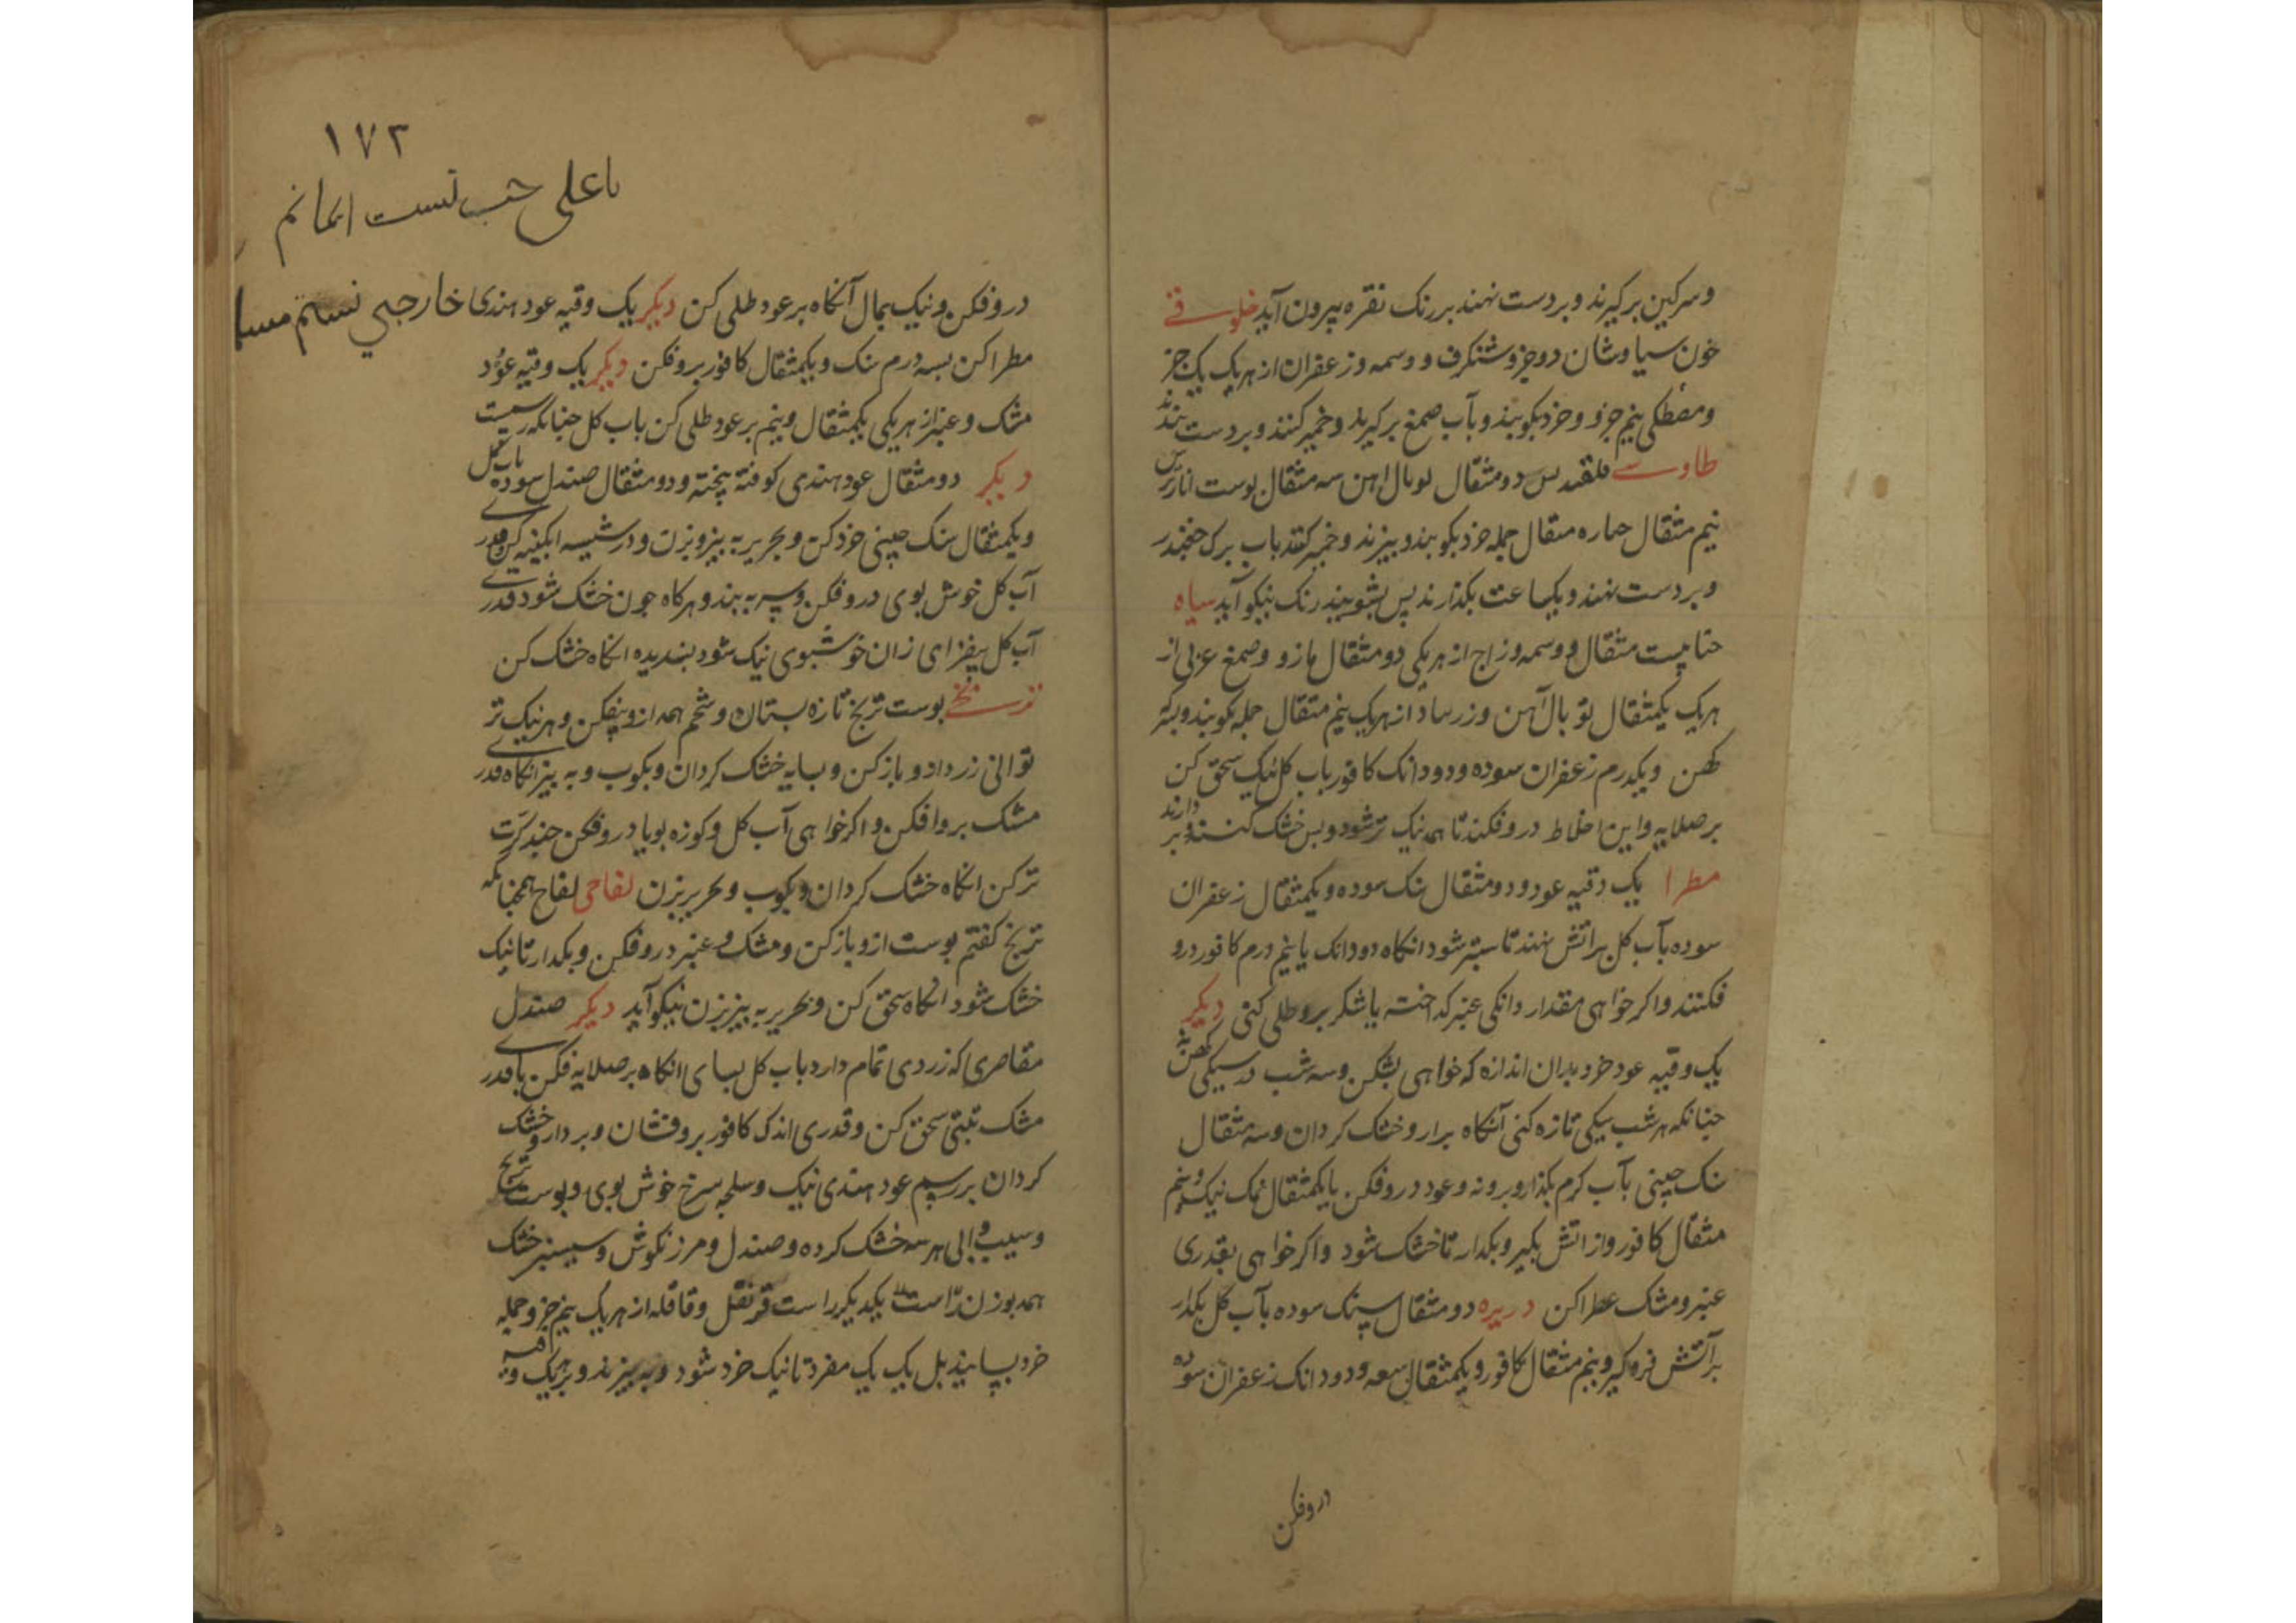 وسرکین برکیرند وبردست نهند بررنک نقره بیرون آید خلوسقے
خون سیاوشان دوجزو شنکرف و وسمه وزعفران از هریک یک جز
ومصطکی نیم جزو وخرد بکوبند وبآب صمغ برکیرند وخمیر کنند وبردست بندند
طاوسے دو مثقال اهن سه مثقال پوست انار ترش
نیم مثقال مثقال جمله خرد بکوبند وبیزند وخمیر کنند باب برک جغندر
وبردست نهند ویکساعت بکذارند پس بشویند رنک نیکو آید سیاه
حنا بیست مثقال ووسمه وزاج از هریکی دو مثقال مازو وصمغ عربی از
هریک یکمثقال توبال آهن از هریک نیم مثقال جمله بکوبند
کهن ویکدرم زعفران سوده ودودانک کافور باب کل نیک سحق کن
برصلایه واین اخلاط دروفکند تا همه نیک تر شود وپس خشک کنند وبر دارند
مطرا یک وقیه عود ودومثقال سک سوده ویکمثقال زعفران
سوده بآب کل براتش نهند تا ستبر شود انکاه دودانک یا نیم درم کافور درو
فکنند واکر خواهی مقدار دانکی عنبر کداخته یا شکر بروطلی کنی دیکر
یک وقیه عود خرد بدان اندازه که خواهی بشکن وسه شب در سیکی کهن نه
جنانکه هرشب سیکی تازه کنی آنکاه برار وخشک کردان وسه مثقال
سک جینی بآب کرم بکذار وبرونه وعود دروفکن بایکمثقال نمک نیک ونیم
مثقال کافور وازاتش بکیر وبکدار تا خشک شود واکر خواهی بقدری
عنبر ومشک عطرا کن دریره دو مثقال سک سوده بآب کل بکدار
برآتش فروکیر ونیم مثقال کافور ویکمثقال سعه ودودانک زعفران سوده
دروفکن
١٧٢
یا علی حب تست ایمانم
دروفکن ونیک بمال آنکاه برعود طلی کن دیکر یک وقیه عود هندی خارجی نسیم
مطرا کن بسه درم سک ویکمثقال کافور بروفکن دیکر یک وقیه عود
مشک وعنبر از هریکی یکمثقال ونیم برعود طلی کن باب کل جنانکه رسمست
دیکر دو مثقال عود هندی کوفته پخته ودو مثقال صندل سوده باب کل
ویکمثقال سک جینی خرد کن وبحریر به بیز وبزن ودر شیسه ابکینه کن وقدری
آب کل خوش بوی دروفکن وسر به بند وهرکاه جون خشک شود قدری
آب کل بیفزای زان خوشبوی نیک شود بسدیده انکاه خشک کن
ترنجے پوست ترنج تازه بستان وشحم همه ازو بیفکن وهر نیک تر
توانی زرد ازو بازکن وبسایه خشک کردان وبکوب وبه بیز انکاه قدری
مشک بروافکن واکر خواهی آب کل وکوزه بویا دروفکن جند کرت
تر کن انکاه خشک کردان وبکوب وبحریر بزن لفاحی لفاح همجنانکه
ترنج کفتم پوست ازو بازکن ومشک وعنبر دروفکن وبکدار تا نیک
خشک شود انکاه سحق کن وبحریر به بیز بزن نیکو آید دیکر صندل
مقاصری که زردی تمام دارد باب کل بسای انکاه برصلایه فکن با قدری
مشک تبتی سحق کن وقدری اندک کافور بروفشان وبردار وخشک
کردان بررسم عود هندی نیک وسلجه سرخ خوش بوی وپوست ترنج
وسیب وابی هرسه خشک کرده وصندل ومرزنکوش وسیسنبر خشک
همه بوزن راست یکدیکر راست قرنفل وقاقله از هریک نیم جز وجمله
خرد بسایند بل یک یک مفرد تا نیک خرد شود وبه بیزند